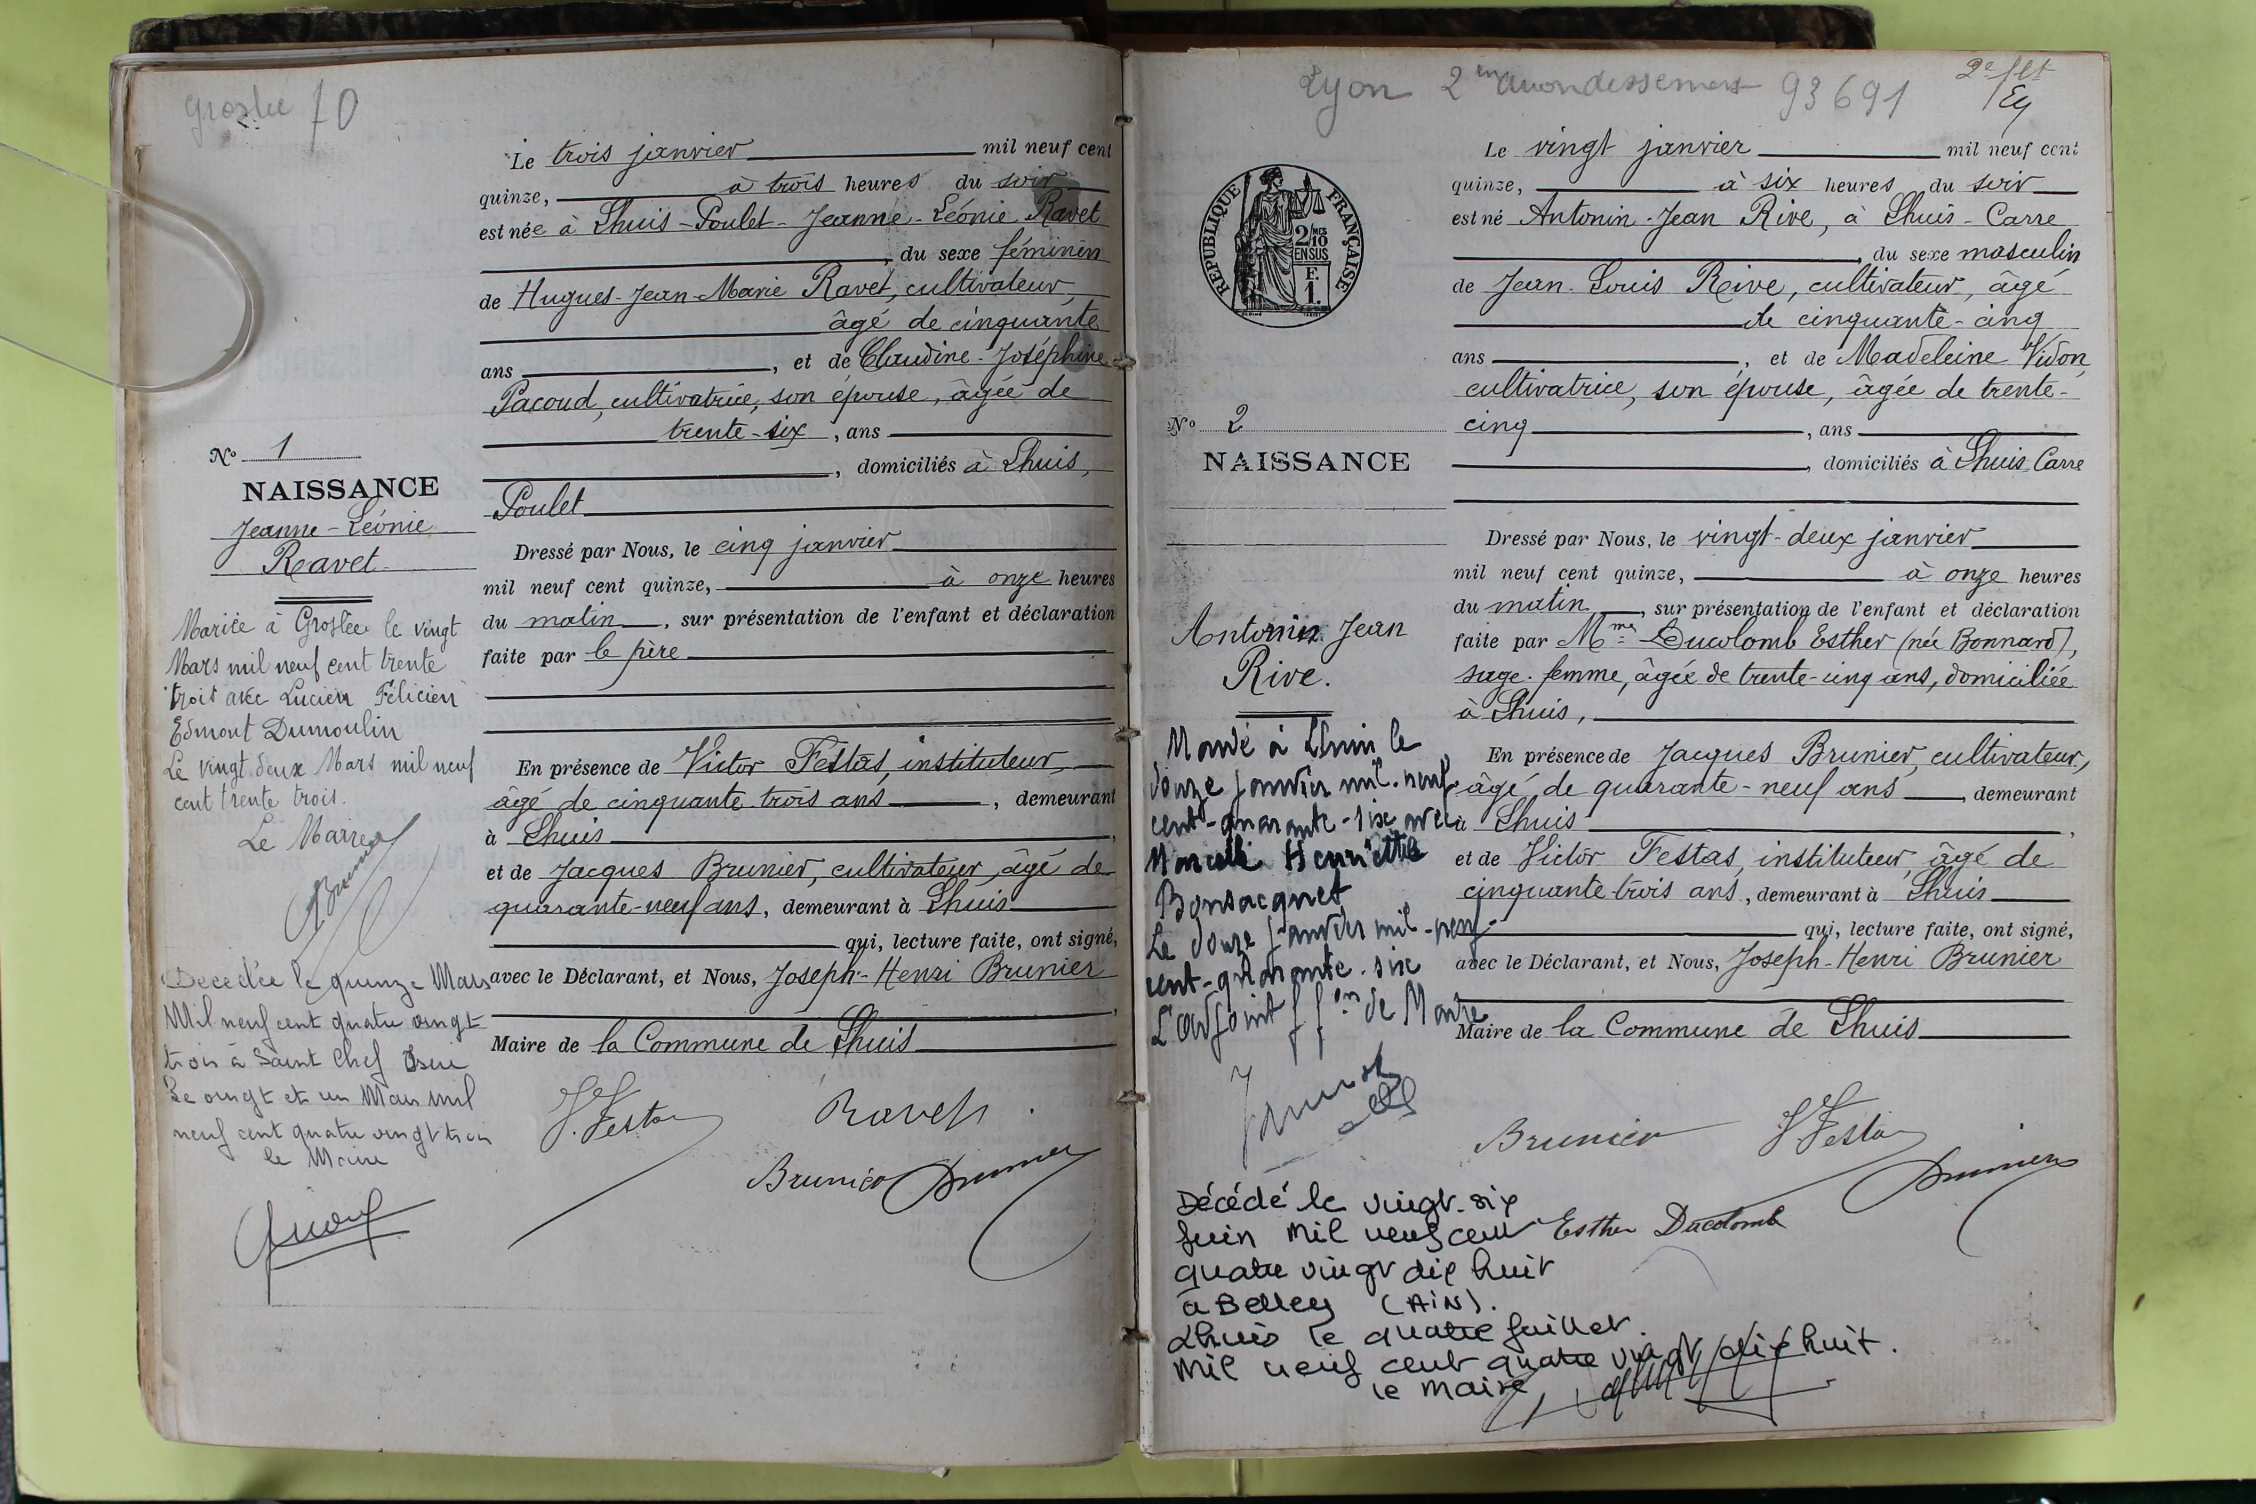 Groslée 70
Le trois janvier mil neuf cent
quinze, à trois heures du soir
est née à Lhuis-Poulet-Jeanne-Léonie Ravet
, du sexe féminin
de Hugues-Jean-Marie Ravet, cultivateur,
âgé de cinquante
ans , et de Claudine-Joséphine
Pacoud, cultivatrice, son épouse, âgée de
trente-six , ans
, domiciliés à Lhuis,
Poulet
Dressé par Nous, le cinq janvier
mil neuf cent quinze, à onze heures
du matin , sur présentation de l'enfant et déclaration
faite par le père
En présence de Victor Festas, instituteur,
âgé de cinquante trois ans , demeurant
à Lhuis ,
et de Jacques Brunier, cultivateur, âgé de
quarante-neuf ans, demeurant à Lhuis
qui, lecture faite, ont signé,
avec le Déclarant, et Nous, Joseph-Henri Brunier
,
Maire de la Commune de Lhuis
V. Festas Ravet
Brunier Brunier
No 1
NAISSANCE
Jeanne-Léonie
Ravet
Mariée à Groslée le vingt
Mars mil neuf cent trente
trois avec Lucien Félicien
Edmont Dumoulin
Le vingt deux Mars mil neuf
cent trente trois.
Le Maire
Brunier
Décédée le quinze Mars
Mil neuf cent quatre vingt
trois à Saint Chef Isère
Le vingt et un Mars mil
neuf cent quatre vingt trois
le Maire
Lyon 2em arrondissement 93691
2e flt
Ey
RÉPUBLIQUE FRANÇAISE
2/10 MES
EN SUS
F.
1.
Le vingt janvier mil neuf cent
quinze, à six heures du soir
est né Antonin-Jean Rive, à Lhuis-Carre
, du sexe masculin
de Jean-Louis Rive, cultivateur, âgé
de cinquante-cinq
ans , et de Madeleine Vidon,
cultivatrice, son épouse, âgée de trente-
cinq , ans
, domiciliés à Lhuis, Carre
Dressé par Nous, le vingt-deux janvier
mil neuf cent quinze, à onze heures
du matin , sur présentation de l'enfant et déclaration
faite par Mme Ducolomb Esther (née Bonnard),
sage-femme, âgée de trente-cinq ans, domiciliée
à Lhuis,
En présence de Jacques Brunier, cultivateur,
âgé de quarante-neuf ans , demeurant
à Lhuis ,
et de Victor Festas, instituteur, âgé de
cinquante-trois ans, demeurant à Lhuis
qui, lecture faite, ont signé,
avec le Déclarant, et Nous, Joseph-Henri Brunier
Maire de la Commune de Lhuis
Brunier V. Festas
Brunier
Esther Ducolomb
No 2
NAISSANCE
Antonin Jean
Rive.
Marié à Lhuis le
douze janvier mil-neuf
cent-quarante-six avec
Marcelle Henriette
Bonsacquet
Le douze janvier mil-neuf-
cent-quarante-six
L'adjoint f fon de Maire
Décédé le vingt-six
juin mil neuf cent
quatre vingt dix huit
à Belley (AIN).
Lhuis le quatre juillet.
mil neuf cent quatre vingt dix huit.
le maire